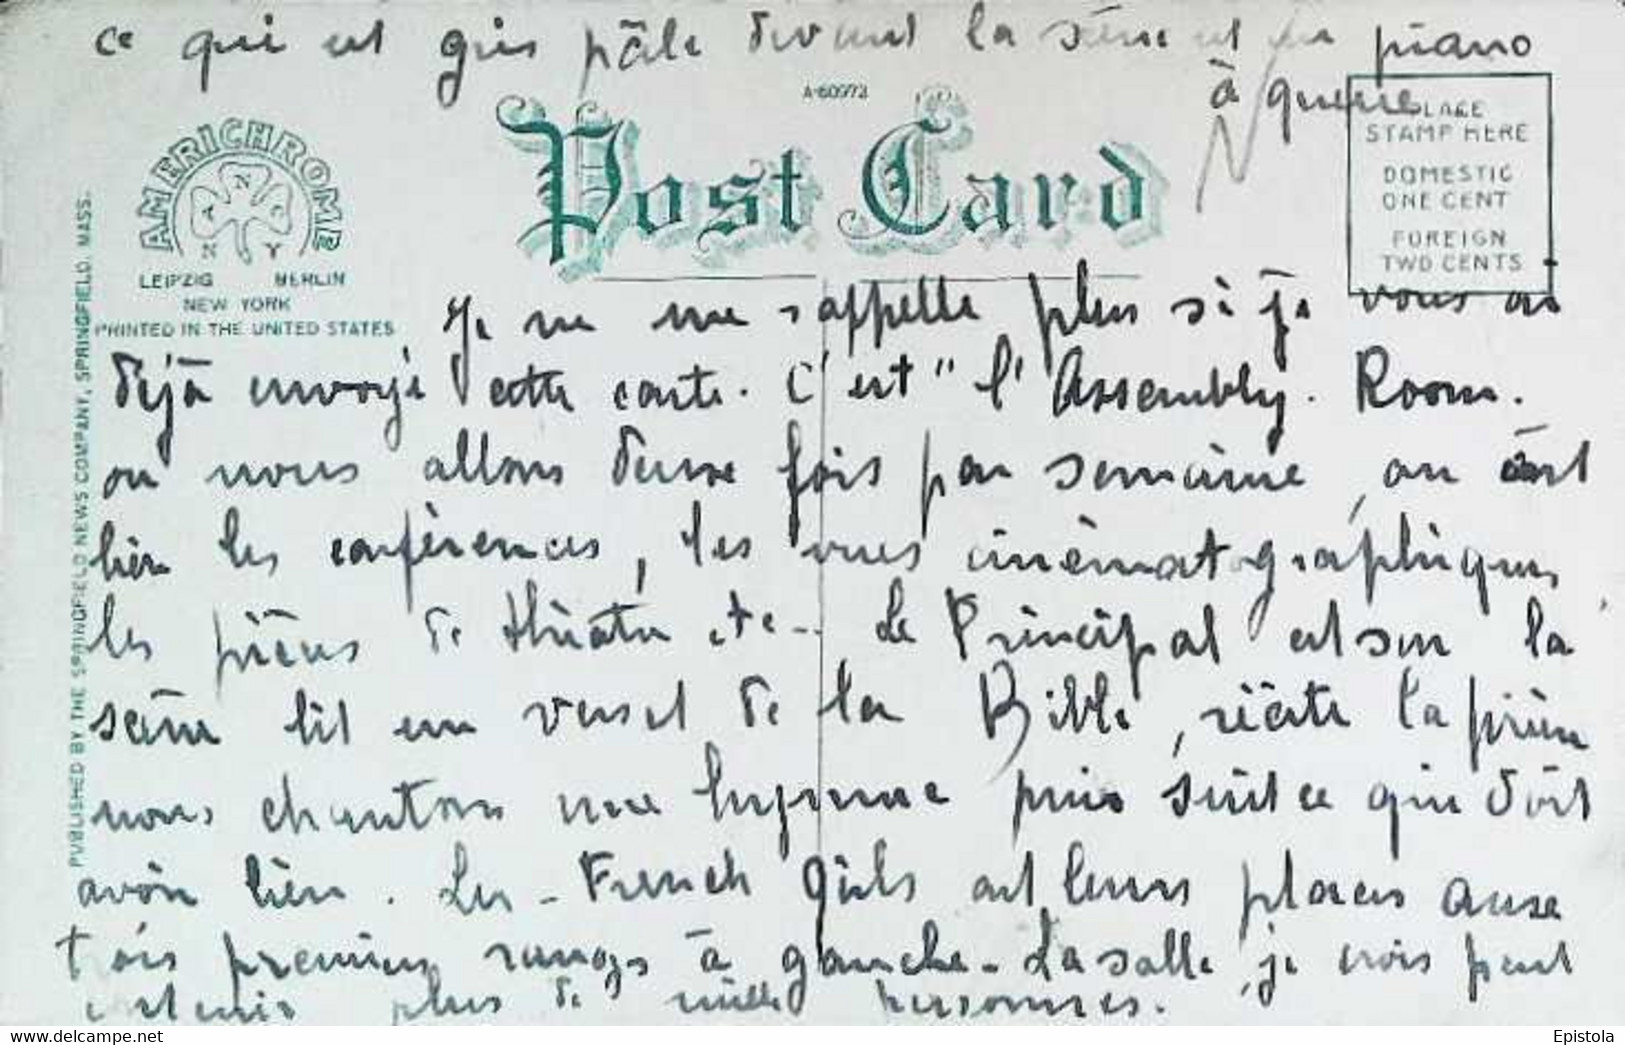 ce qui est gris pâle devant la scène est un piano
à queue
A-60973
AMERICHROME
A N C N Y
LEIPZIG BERLIN
NEW YORK
PRINTED IN THE UNITED STATES
Post Card
PLACE
STAMP HERE
DOMESTIC
ONE CENT
FOREIGN
TWO CENTS
PUBLISHED BY THE SPRINGFIELD NEWS COMPANY, SPRINGFIELD, MASS.
Je ne me rappelle plus si je vous ai
déjà envoyé cette carte. C'est "l'Assembly. Room.
ou nous allons deux fois par semaine, ou ont
lieu les conférences, les vues cinématographiques,
les pièces de théatre etc.. Le Principal est sur la
scène lit un verset de la Bible, récite la prière
nous chantons une hymne puis suit ce qui doit
avoir lieu. Les French Girls ont leurs places aux
trois premiers rangs à gauche. La salle, je crois peut
contenir plus de mille personnes.
www.delcampe.net
Epistola